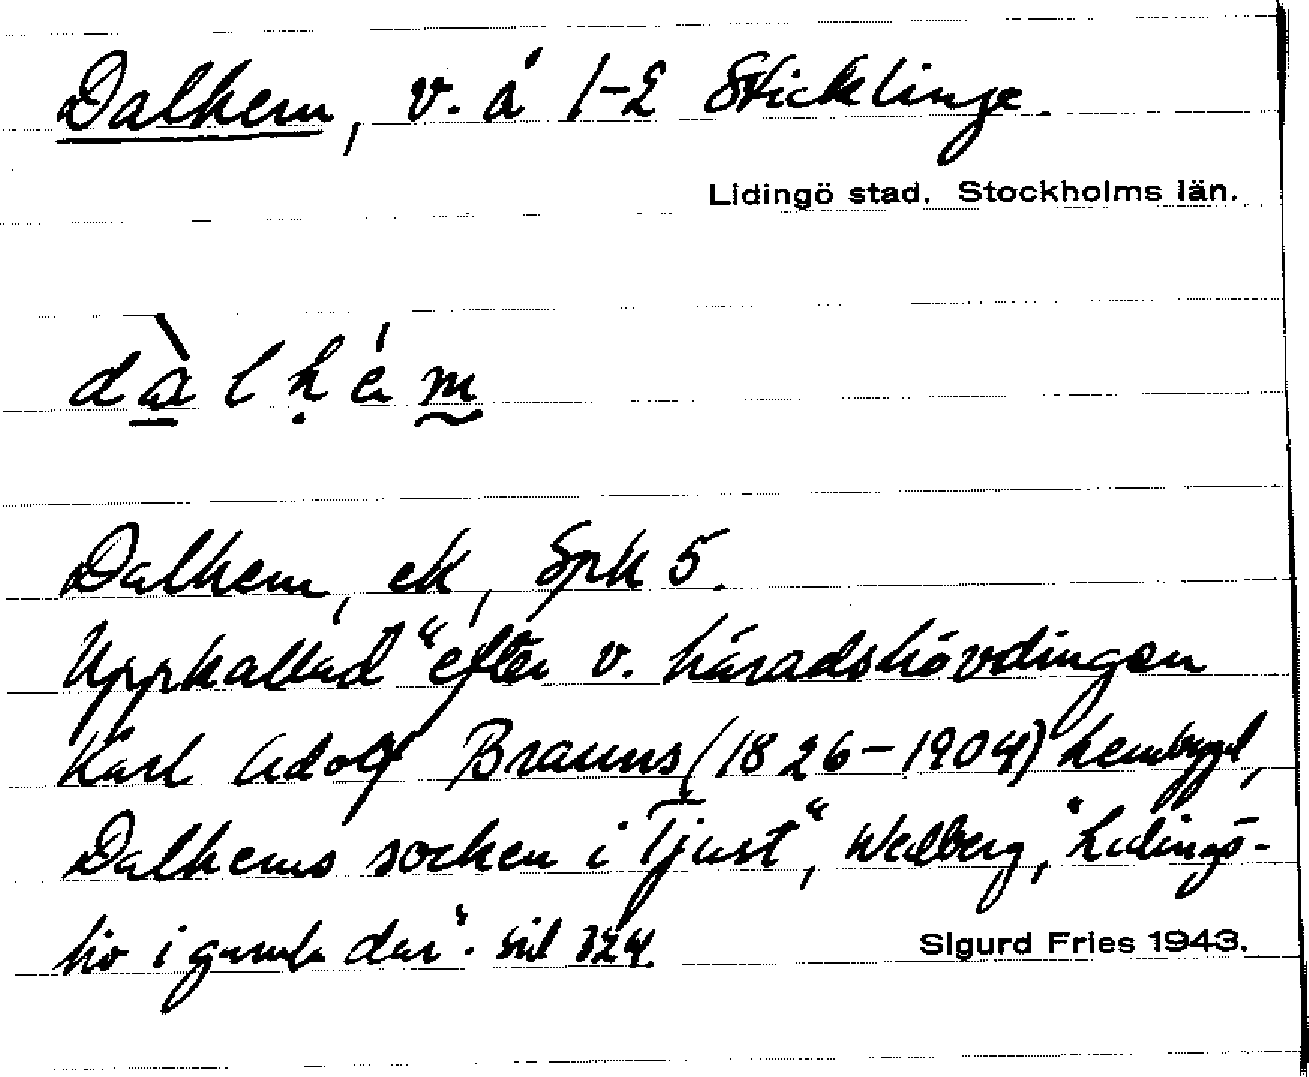 Dalhem, v. å 1-2 Sticklinge.
Lidingö stad. Stockholms län.
dàlhém
Dalhem, ek, Spk 5.
Uppkallad "efter v. häradshövdingen
Karl Adolf Brauns (1826-1904) hembygd,
Dalhems socken i Tjust", Wedberg, "Lidingö-
liv i gamla dar". sid 324.
Sigurd Fries 1943.